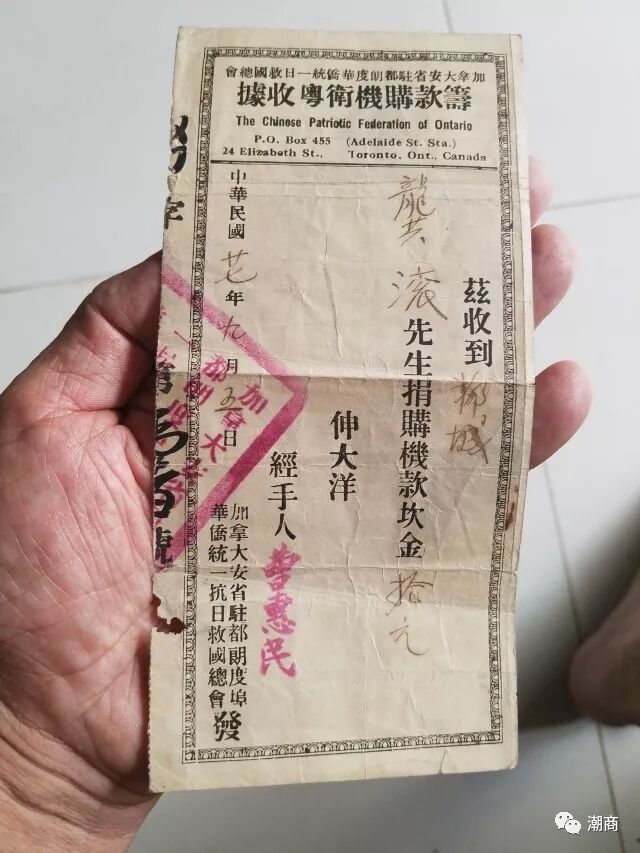 加拿大安省駐都朗度華僑統一抗日救國總會
籌款購機衛粵收據
The Chinese Patriotic Federation of Ontario
P.O. Box 455 (Adelaide St. Sta.)
24 Elizabeth St., Toronto, Ont., Canada
茲收到
先生捐購機款坎金拾元
伸大洋
經手人 惠民
中華民國廿七年九月五日
加拿大安省駐都朗度埠
華僑統一抗日救國總會發
字第 百 號
潮商